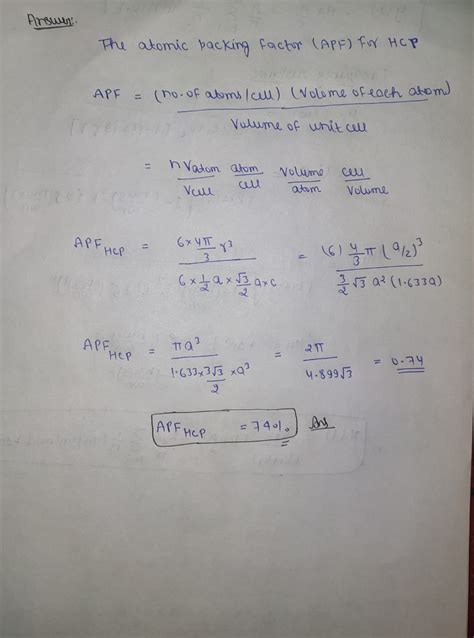 Answer:
The atomic packing factor (APF) for HCP
APF = (no. of atoms/cell) (Volome of each atom) / Volume of unit cell
= n Vatom / Vcell atom / cell Volume / atom cell / Volume
APF HCP = 6 × 4π/3 r³ / 6 × 1/2 a × √3/2 a × c = (6) 4/3 π (a/2)³ / 3/2 √3 a² (1.633a)
APF HCP = πa³ / 1.633 × 3√3/2 × a³ = 2π / 4.899√3 = 0.74
APF HCP = 74%. Ans